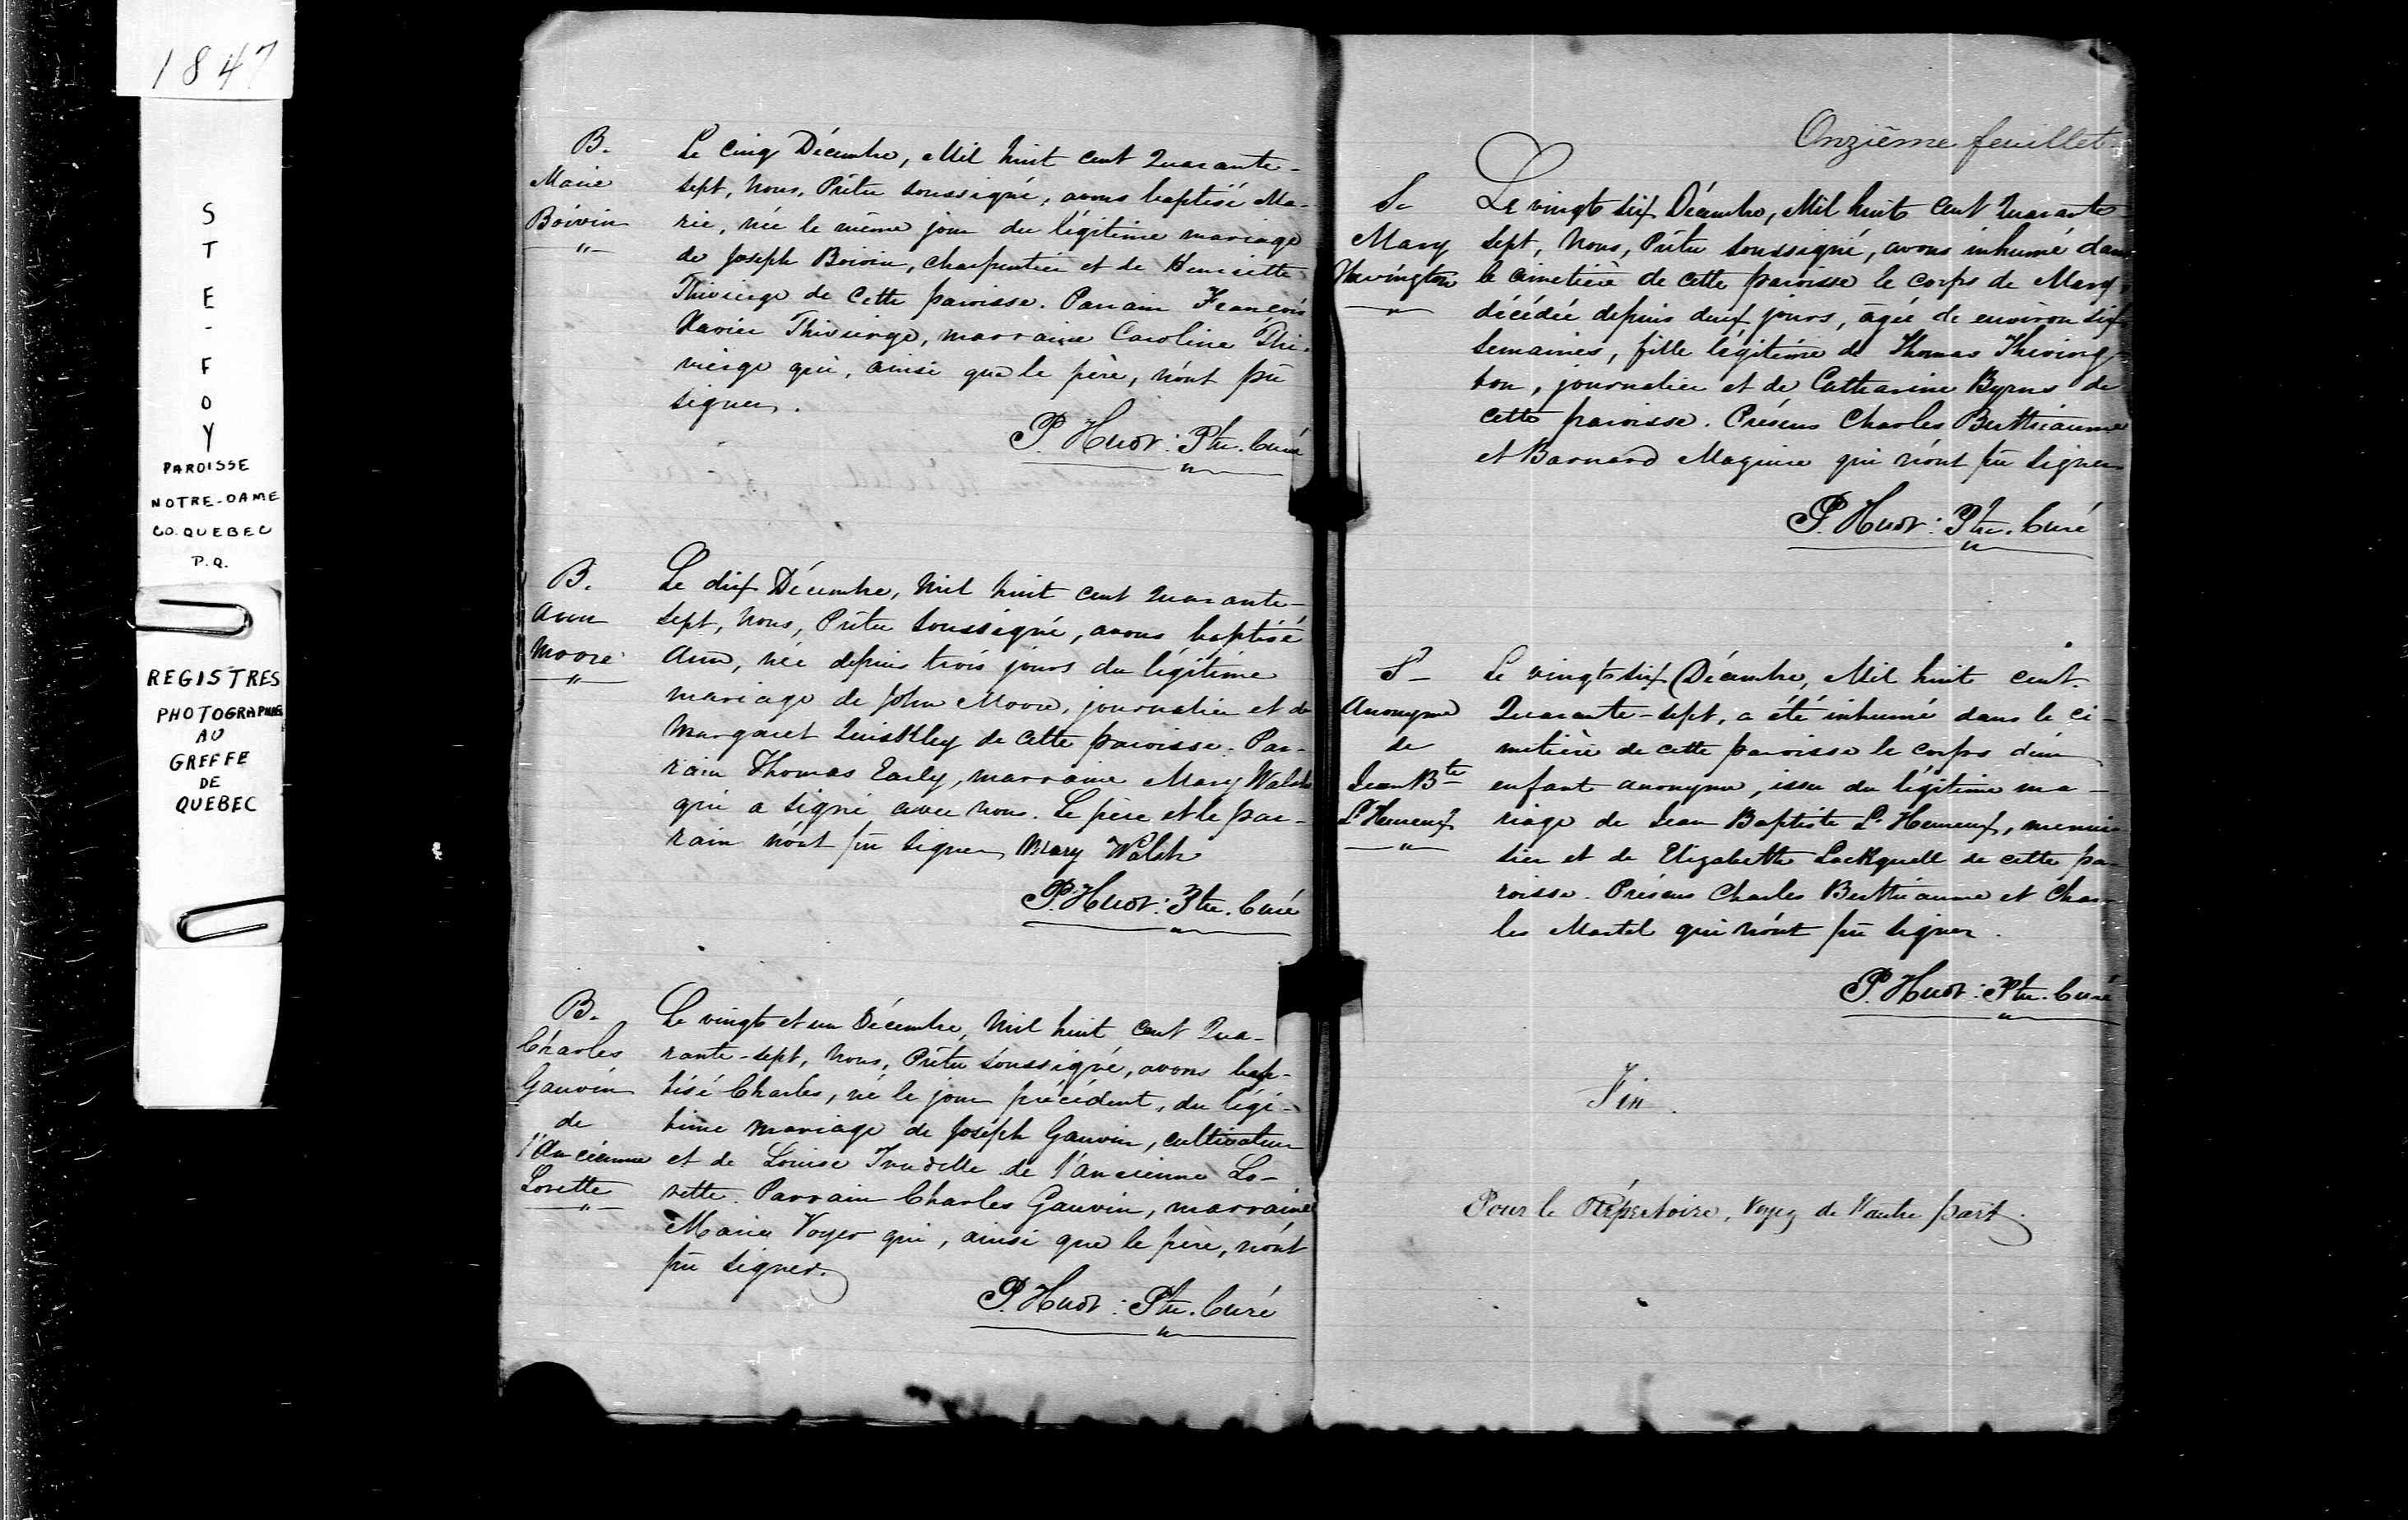 1847
S
T
E
-
F
O
Y
PAROISSE
NOTRE-DAME
CO. QUEBEC
P.Q.
REGISTRES
PHOTOGRAPHIÉS
AU
GREFFE
DE
QUEBEC
B.
Marie
Boivin
Le cinq Décembre, Mil huit cent Quarante-
sept, Nous, Prêtre soussigné, avons baptisé Ma-
rie, née le même jour du légitime mariage
de Joseph Boivin, charpentier et de Henriette
Thivierge de cette paroisse. Parrain François
Xavier Thivierge, marraine Caroline Thi-
vierge qui, ainsi que le père, n'ont pû
signer.
P. Huot: Ptre. Curé
B.
Ann
Moore
Le dix Décembre, Mil huit cent Quarante-
sept, Nous, Prêtre soussigné, avons baptisé
Ann, née depuis trois jours du légitime
mariage de John Moore, journalier et de
Margaret Quiskley de cette paroisse. Par-
rain Thomas Early, marraine Mary Walsh
qui a signé avec nous. Le père et le par-
rain n'ont pû signer Mary Walsh
P. Huot: Ptre. Curé
B.
Charles
Gauvin
de
l'Ancienne
Lorette
Le vingt et un Décembre, Mil huit cent Qua-
rante-sept, Nous, Prêtre soussigné, avons bap-
tisé Charles, né le jour précédent, du légi-
time mariage de Joseph Gauvin, cultivateur
et de Louise Trudelle de l'ancienne Lo-
rette. Parrain Charles Gauvin, marraine
Marie Voyer qui, ainsi que le père, n'ont
pû signer.
P. Huot: Ptre. Curé
Onzième feuillet
S.
Mary
Le vingt six Décembre, Mil huit cent Quarante
sept, Nous, Prêtre soussigné, avons inhumé dans
le cimetière de cette paroisse le corps de Mary
décédée depuis deux jours, âgée de environ six
semaines, fille légitime de Thomas
ton, journalier et de Catharine Byrns de
cette paroisse. Présens Charles Berthiaume
et Barnard Maguire qui n'ont pû signer
P. Huot: Ptre. Curé
S
Anonyme
de
Jean Bte
L'Heureux
Le vingt six Décembre, Mil huit cent
Quarante-sept, a été inhumé dans le ci-
metière de cette paroisse le corps d'un
enfant anonyme, issu du légitime ma-
riage de Jean Baptiste L'Heureux, menui-
sier et de Elizabeth Lackquell de cette pa-
roisse. Présens Charles Berthiaume et Char-
les Martel qui n'ont pû signer.
P. Huot: Ptre. Curé
Fin.
Pour le Répertoire, Voyez de l'autre part.